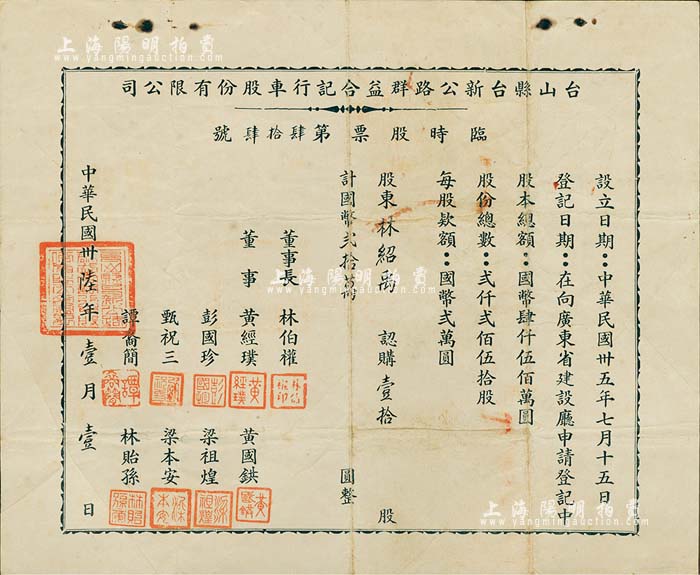 上海陽明拍賣
www.yangmingauction.com
上海陽明拍賣
www.yangmingauction.com
台山縣台新公路群益合記行車股份有限公司
臨時股票第肆拾肆號
設立日期：中華民國卅五年七月十五日
登記日期：在向廣東省建設廳申請登記中
股本總額：國幣肆仟伍佰萬圓
股份總數：弍仟弍佰伍拾股
每股欵額：國幣弍萬圓
股東林紹禹 認購壹拾 股
計國幣弍拾萬 圓整
董事長 林伯權
董事 黃經璞 黃國鉷
彭國珍 梁祖煌
甄祝三 梁本安
譚裔簡 林貽孫
中華民國卅陸年壹月壹日
上海陽明拍賣
www.yangmingauction.com
上海陽明拍賣
www.yangmingauction.com